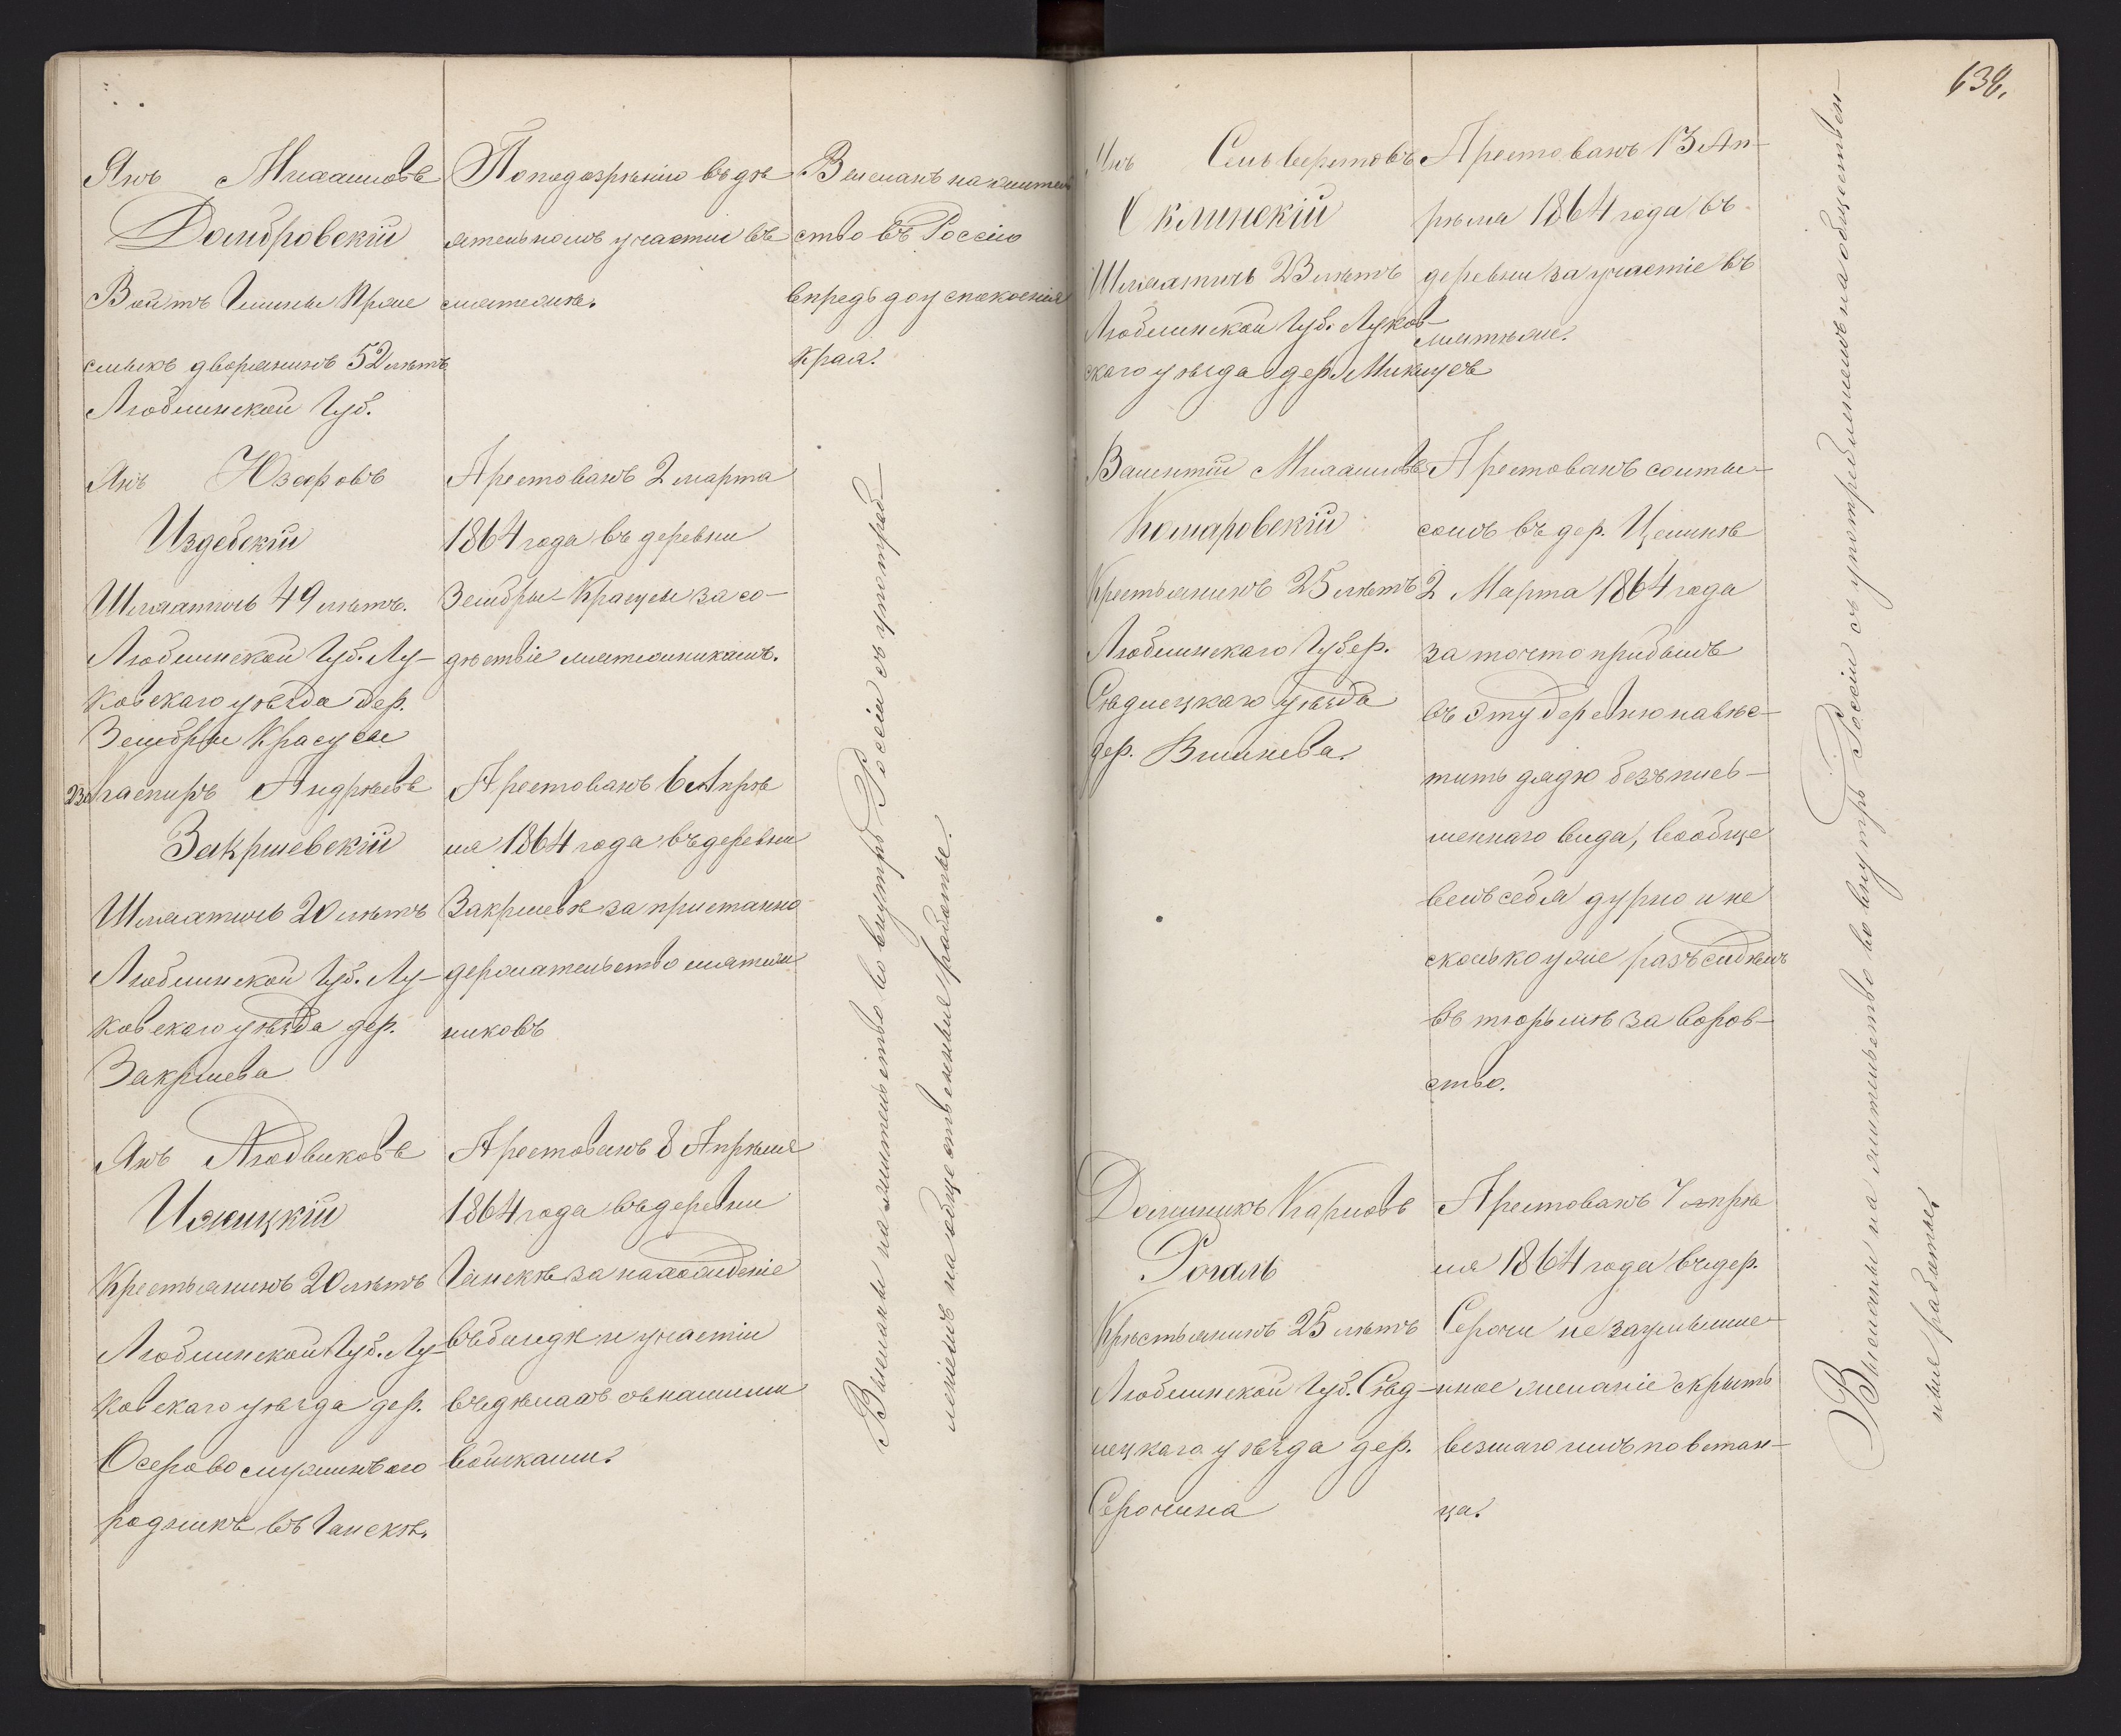 Янъ Михаиловъ
Домбровскій
Войтъ Гмины Пряме
смыкъ дворянинъ 52 лѣтъ
Люблинской Губ.
По подозрѣнію въ дѣ
ятельномъ участіи въ
мятежѣ.
Высланъ на житель
ство въ Россію
впредь до успокоенія
края.
Янъ Юзефовъ
Издебскій
Шляхтичъ 49 лѣтъ.
Люблинской Губ. Лу-
ковскаго уѣзда дер.
Зембры Красусы
Арестованъ 2 марта
1864 года въ деревни
Зембры-Красусы за со-
дѣствіе мятежникамъ.
Каспиръ Андрѣевъ
Закршевскій
Шляхтичъ 20 лѣтъ
Люблинской Губ. Лу-
ковскаго уѣзда дер.
Закршева
Арестованъ 6 Апрѣ
ля 1864 года въ деревни
Закршевѣ за пристанно
держательство мятеж
никовъ
Янъ Людвиковъ
Илжицкій
Крестьянинъ 20 лѣтъ
Люблинской Губ. Лу-
ковскаго уѣзда дер.
Осерово служилъ ого
родникъ въ Ганскѣ.
Арестованъ 8 Апрѣля
1864 года въ деревни
Ганскѣ за нахожденіе
въ бандѣ и участіи
въ дѣлахъ съ нашими
войсками.
Высланы на жительство во внутрь Россіи съ употреб-
леніемъ на общественныя работы.
638.
Янъ Сельверстовъ
Склинскій
Шляхтичъ 23 лѣтъ
Люблинской Губ. Луков-
скаго уѣзда дер. Микицев
Арестованъ 13 Ап-
рѣля 1864 года въ
деревни за участіе въ
мятежѣ.
Валентій Михаиловъ
Комаровскій
Крестьянинъ 25 лѣтъ
Люблинскаго Губер.
Сѣдлецкаго Уѣзда
дер. Вишнева.
Арестованъ солты-
сомъ въ дер. Целинѣ
2 Марта 1864 года
за то что прибылъ
въ эту деревню навѣс-
тить дядю безъ пись-
меннаго вида, вообще
велъ себя дурно и не
сколько уже разъ сидѣлъ
въ тюрьмѣ за воров-
ство.
Доминикъ Карловъ
Рогаль
Крестьянинъ 25 лѣтъ
Люблинской Губ. Сѣд-
лецкаго уѣзда дер.
Серочина
Арестованъ 7 апрѣ
ля 1864 года въ дер.
Серочи не за умышле
нное желаніе скрыть
повстан-
ца.
Высланы на жительство во внутрь Россіи съ употребленіемъ на обществен-
ныя работы.